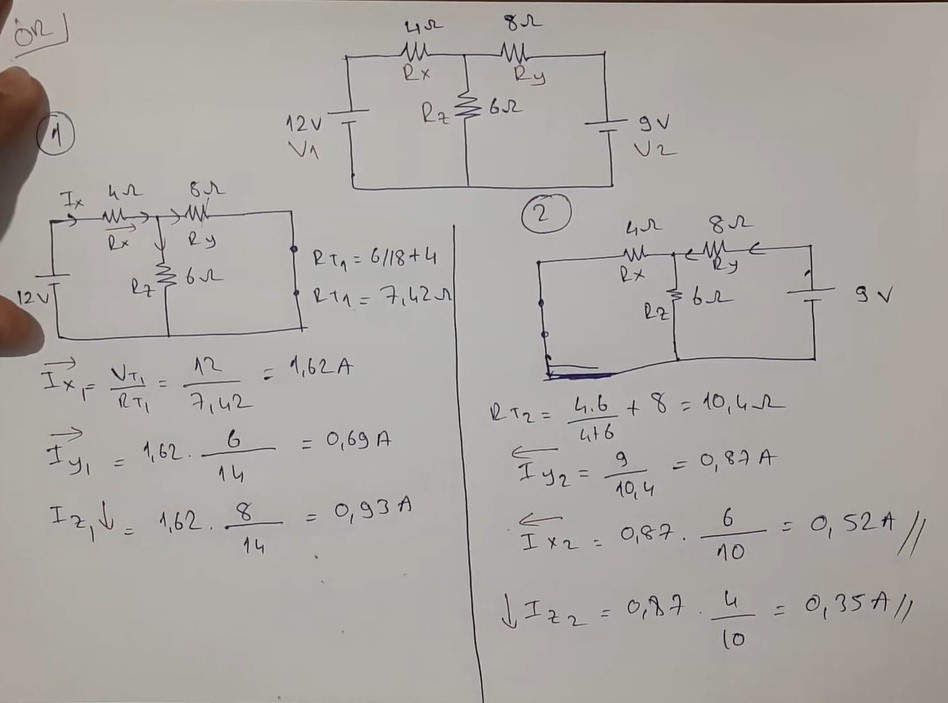 ÖR
4Ω 8Ω
Rx Ry
Rz 6Ω
12V
V1
9V
V2
1
Ix 4Ω 8Ω
Rx Ry
Rz 6Ω
12V
RT1 = 6//8+4
RT1 = 7,42Ω
Ix1 = VT1/RT1 = 12/7,42 = 1,62A
Iy1 = 1,62 . 6/14 = 0,69A
Iz1↓ = 1,62 . 8/14 = 0,93A
2
4Ω 8Ω
Rx Ry
Rz 6Ω
9V
RT2 = 4.6/4+6 + 8 = 10,4Ω
Iy2 = 9/10,4 = 0,87A
Ix2 = 0,87 . 6/10 = 0,52A//
↓Iz2 = 0,87 . 4/10 = 0,35A//